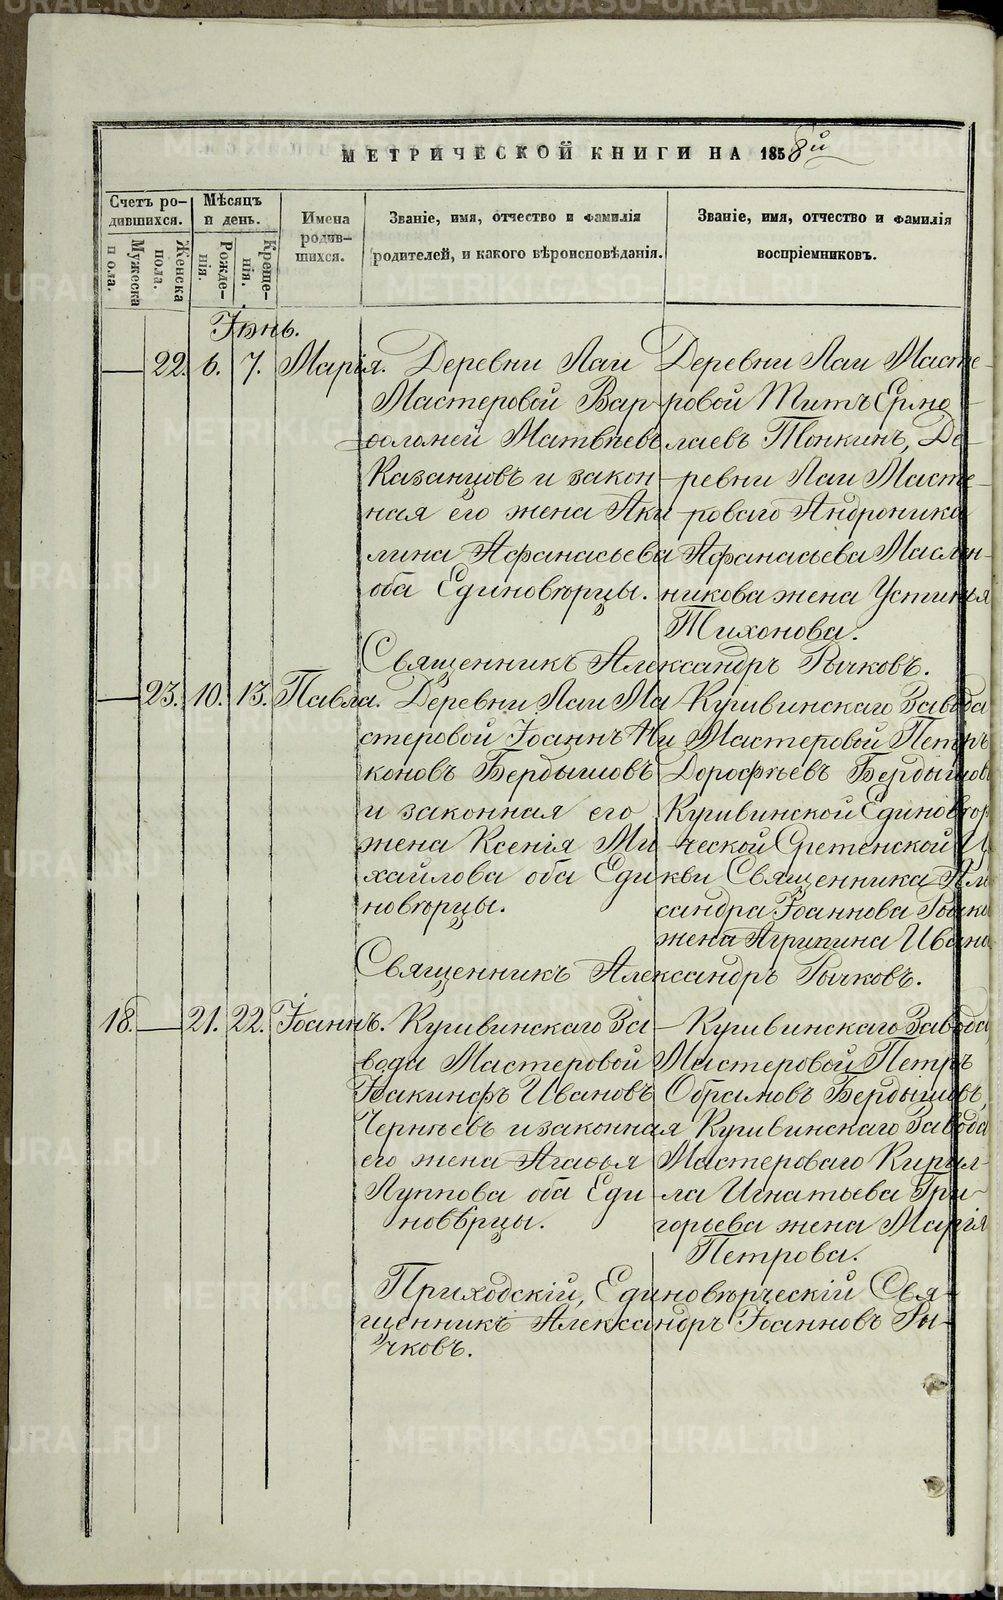 МЕТРИЧЕСКОЙ КНИГИ НА 1858й
Счетъ ро-
дившихся.
Мужеска
пола.
Женска
пола.
Мѣсяцъ
и день.
Рожде-
нія.
Креще-
нія.
Имена
родив-
шихся.
Званіе, имя, отчество и фамилія
родителей, и какого вѣроисповѣданія.
Званіе, имя, отчество и фамилія
воспріемниковъ.
Іюнь.
22. 6. 7. Марія.
Деревни Лаи
Мастеровой Вар-
ѳоломей Матвѣевъ
Казанцовъ и закон-
ная его жена Аки-
лина Афанасьева
оба Единовѣрцы.
Деревни Лаи Масте-
ровой Титъ Ермо-
лаевъ Тонкинъ, Де-
ревни Лаи Масте-
роваго Андроника
Афанасьева Маслен-
никова жена Устинья
Тихонова.
Священникъ Александръ Рычковъ.
23. 10. 13. Павла.
Деревни Лаи Ма
стеровой Іоаннъ Ни
коновъ Бердышовъ
и законная его
жена Ксенія Ми-
хайлова оба Еди
новѣрцы.
Кушвинскаго Завода
Мастеровой Петръ
Дорофѣевъ Бердышовъ
Кушвинской Единовѣр
ческой Сретенской Ц
кви Священника Але
сандра Іоаннова Рычко
жена Агрипина Ивано
Священникъ Александръ Рычковъ.
18. 21. 22. Іоаннъ.
Кушвинскаго За-
вода Мастеровой
Іоакинфъ Ивановъ
Чернѣевъ и законная
его жена Агаѳья
Луппова оба Еди-
новѣрцы.
Кушвинскаго Завода
Мастеровой Петръ
Обрамовъ Бердышовъ,
Кушвинскаго Завода
Мастероваго Кирил-
ла Игнатьева Гри-
горьева жена Марія
Петрова.
Приходскій, Единовѣрческій Свя-
щенникъ Александръ Іоанновъ Ры-
чковъ.
METRIKI.GASO-URAL.RU